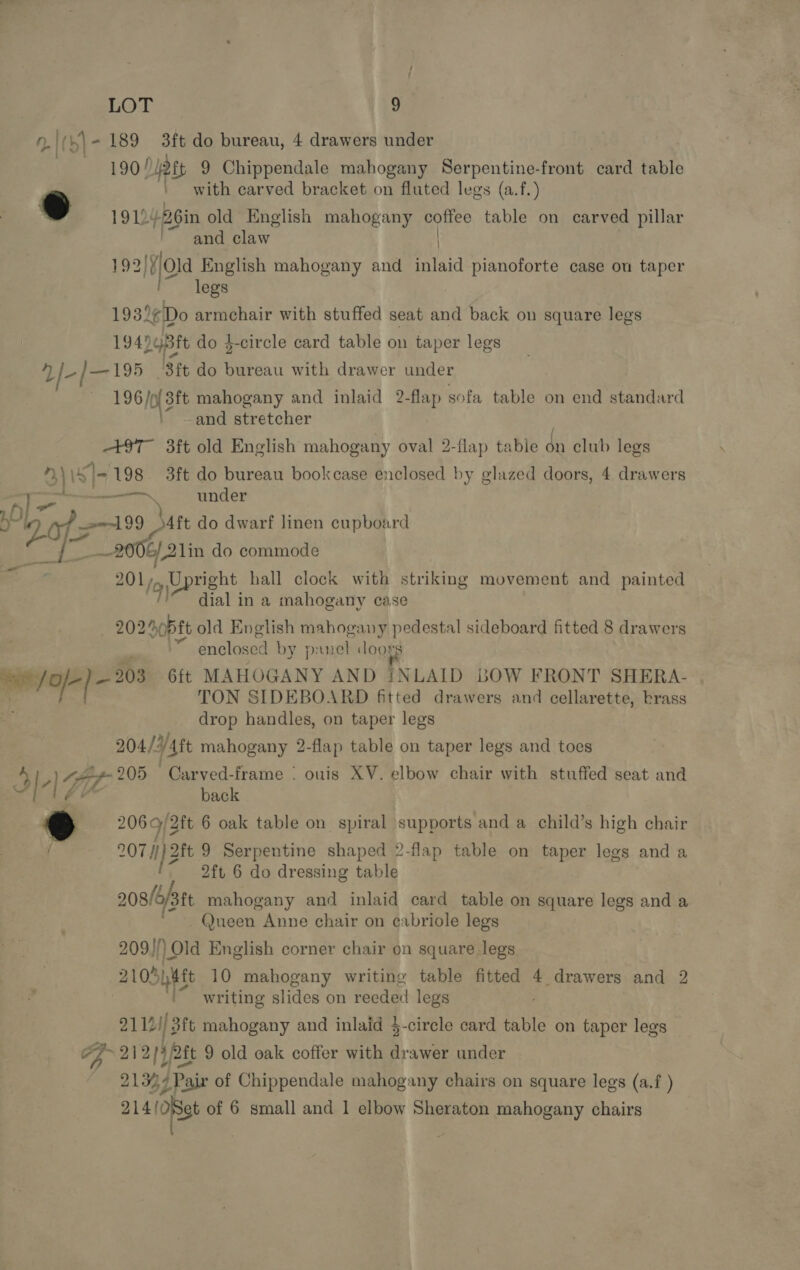 LOT 9
189 3ft do bureau, 4 drawers under
190 2ft 9 Chippendale mahogany Serpentine-front card table
with carved bracket on fluted legs (a.f.)
191 26in old English mahogany coffee table on carved pillar
and claw
192 Old English mahogany and inlaid pianoforte case on taper
legs
193 Do armchair with stuffed seat and back on square legs
194 3ft do ½-circle card table on taper legs
195 3ft do bureau with drawer under
196 3ft mahogany and inlaid 2-flap sofa table on end standard
and stretcher
197 3ft old English mahogany oval 2-flap table on club legs
198 3ft do bureau bookcase enclosed by glazed doors, 4 drawers
under
199 4ft do dwarf linen cupboard
200 21in do commode
201 Upright hall clock with striking movement and painted
dial in a mahogany case
202 5ft old English mahogany pedestal sideboard fitted 8 drawers
enclosed by panel doors
203 6ft MAHOGANY AND INLAID BOW FRONT SHERA-
TON SIDEBOARD fitted drawers and cellarette, brass
drop handles, on taper legs
204 4ft mahogany 2-flap table on taper legs and toes
205 Carved-frame Louis XV. elbow chair with stuffed seat and
back
206 2ft 6 oak table on spiral supports and a child's high chair
207 2ft 9 Serpentine shaped 2-flap table on taper legs and a
2ft 6 do dressing table
208 3ft mahogany and inlaid card table on square legs and a
Queen Anne chair on cabriole legs
209 Old English corner chair on square legs
210 4ft 10 mahogany writing table fitted 4 drawers and 2
writing slides on reeded legs
211 3ft mahogany and inlaid ½-circle card table on taper legs
212 2ft 9 old oak coffer with drawer under
213 Pair of Chippendale mahogany chairs on square legs (a.f )
214 Set of 6 small and 1 elbow Sheraton mahogany chairs